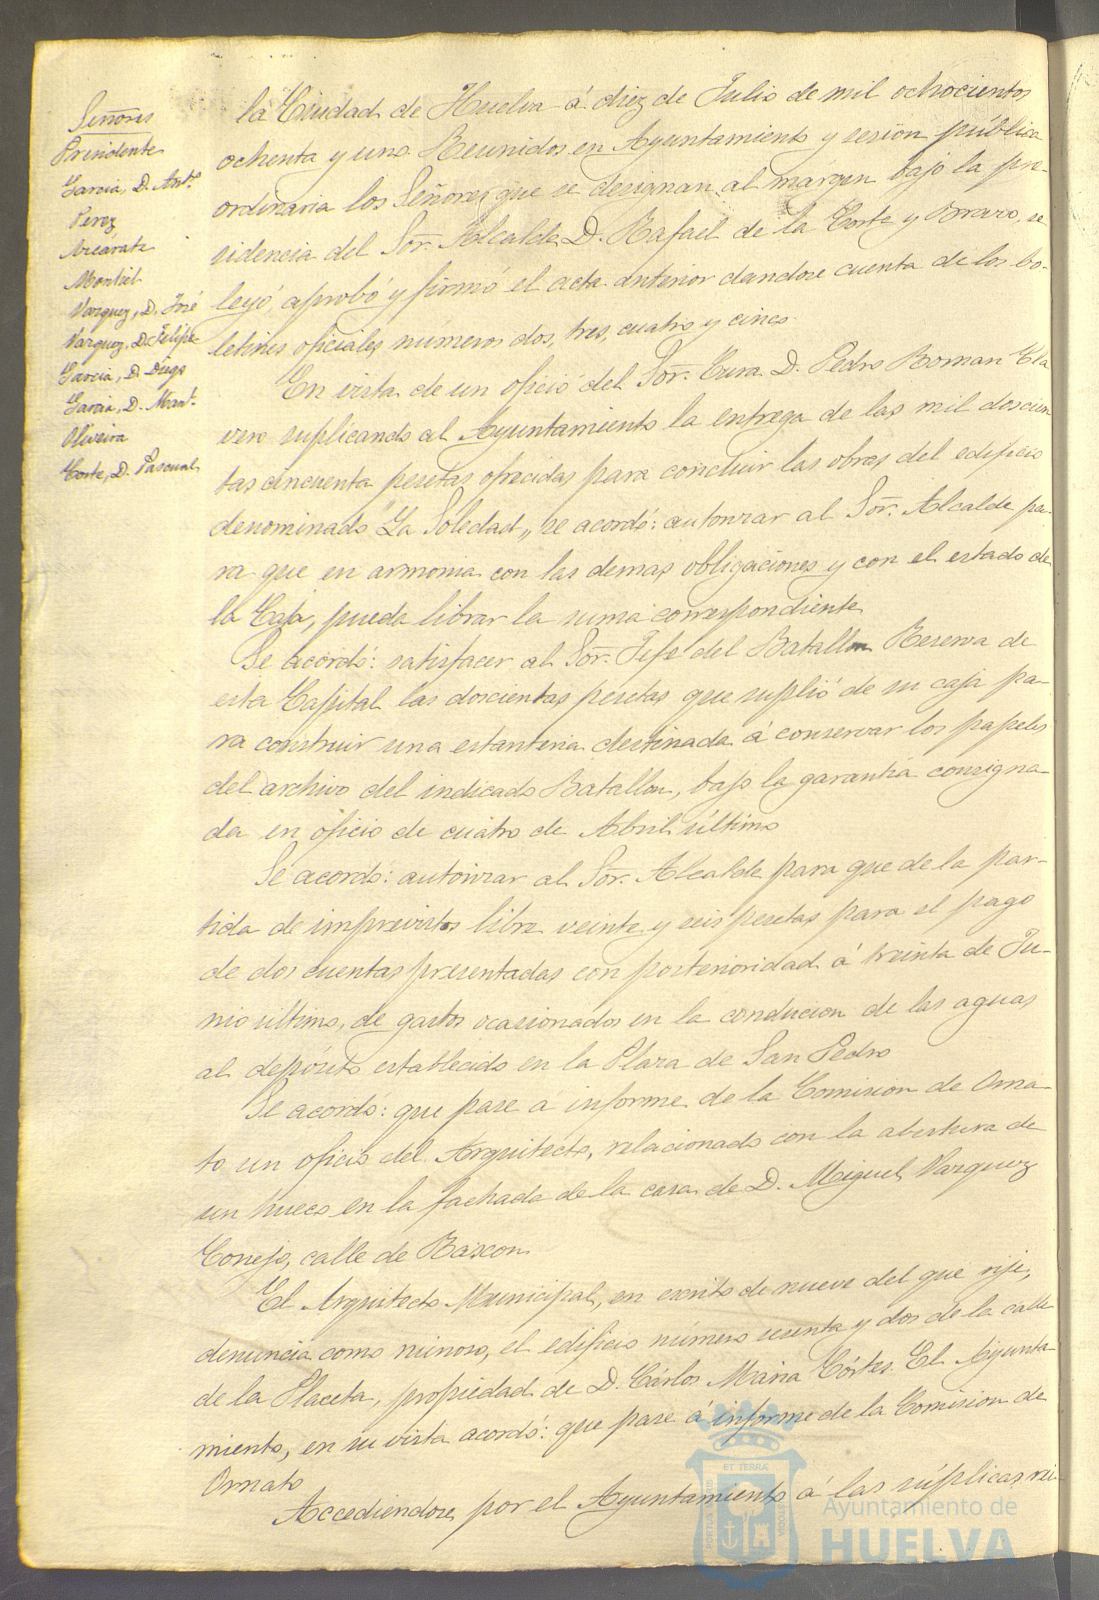 Señores
Presidente
Garcia, D. Antº
Perez
Azcárate
Montiel
Vazquez, D. José
Vazquez, D. Felipe
Garcia, D. Diego
Garcia, D. Manl.
Oliveira
Corte, D. Pascual
la Ciudad de Huelva á diez de Julio de mil ochocientos
ochenta y uno. Reunidos en Ayuntamiento y sesion pública
ordinaria los Señores que se designan al márgen bajo la pre-
sidencia del Sor. Alcalde D. Rafael de la Corte y Bravo, se
leyó, aprobó y firmó el acta anterior dandose cuenta de los bo-
letines oficiales números dos, tres, cuatro y cinco.
En vista de un oficio del Sor. Cura D. Pedro Roman Cla
vero suplicando al Ayuntamiento la entrega de las mil doscien
tas cincuenta pesetas ofrecidas para concluir las obras del edificio
denominado "La Soledad„ se acordó: autorizar al Sor. Alcalde pa-
ra que en armonia con las demas obligaciones y con el estado de
la Caja, pueda librar la suma correspondiente
Se acordó: satisfacer al Sor. Jefe del Batallon Reserva de
esta Capital las doscientas pesetas que suplió de su caja pa-
ra construir una estanteria destinada á conservar los papeles
del archivo del indicado Batallon, bajo la garantia consigna-
da en oficio de cuatro de Abril último
Se acordó: autorizar al Sor. Alcalde para que de la par-
tida de imprevistos libre veinte y seis pesetas para el pago
de dos cuentas presentadas con posterioridad á treinta de Ju-
nio último, de gastos ocasionados en la conducion de las aguas
al depósito establecido en la Plaza de San Pedro
Se acordó: que pase á informe de la Comision de Orna-
to un oficio del Arquitecto, relacionado con la abertura de
un hueco en la fachada de la casa de D. Miguel Vazquez
Conejo, calle de Rascon
El Arquitecto Municipal, en escrito de nueve del que rije,
denuncia como ruinoso, el edificio número sesenta y dos de la calle
de la Placeta, propiedad de D. Cárlos Maria Córtes. El Ayunta
miento, en su vista acordó: que pase á informe de la Comision de
Ornato
Accediendose por el Ayuntamiento á las súplicas rei-
ET TERRÆ
Ayuntamiento de
HUELVA